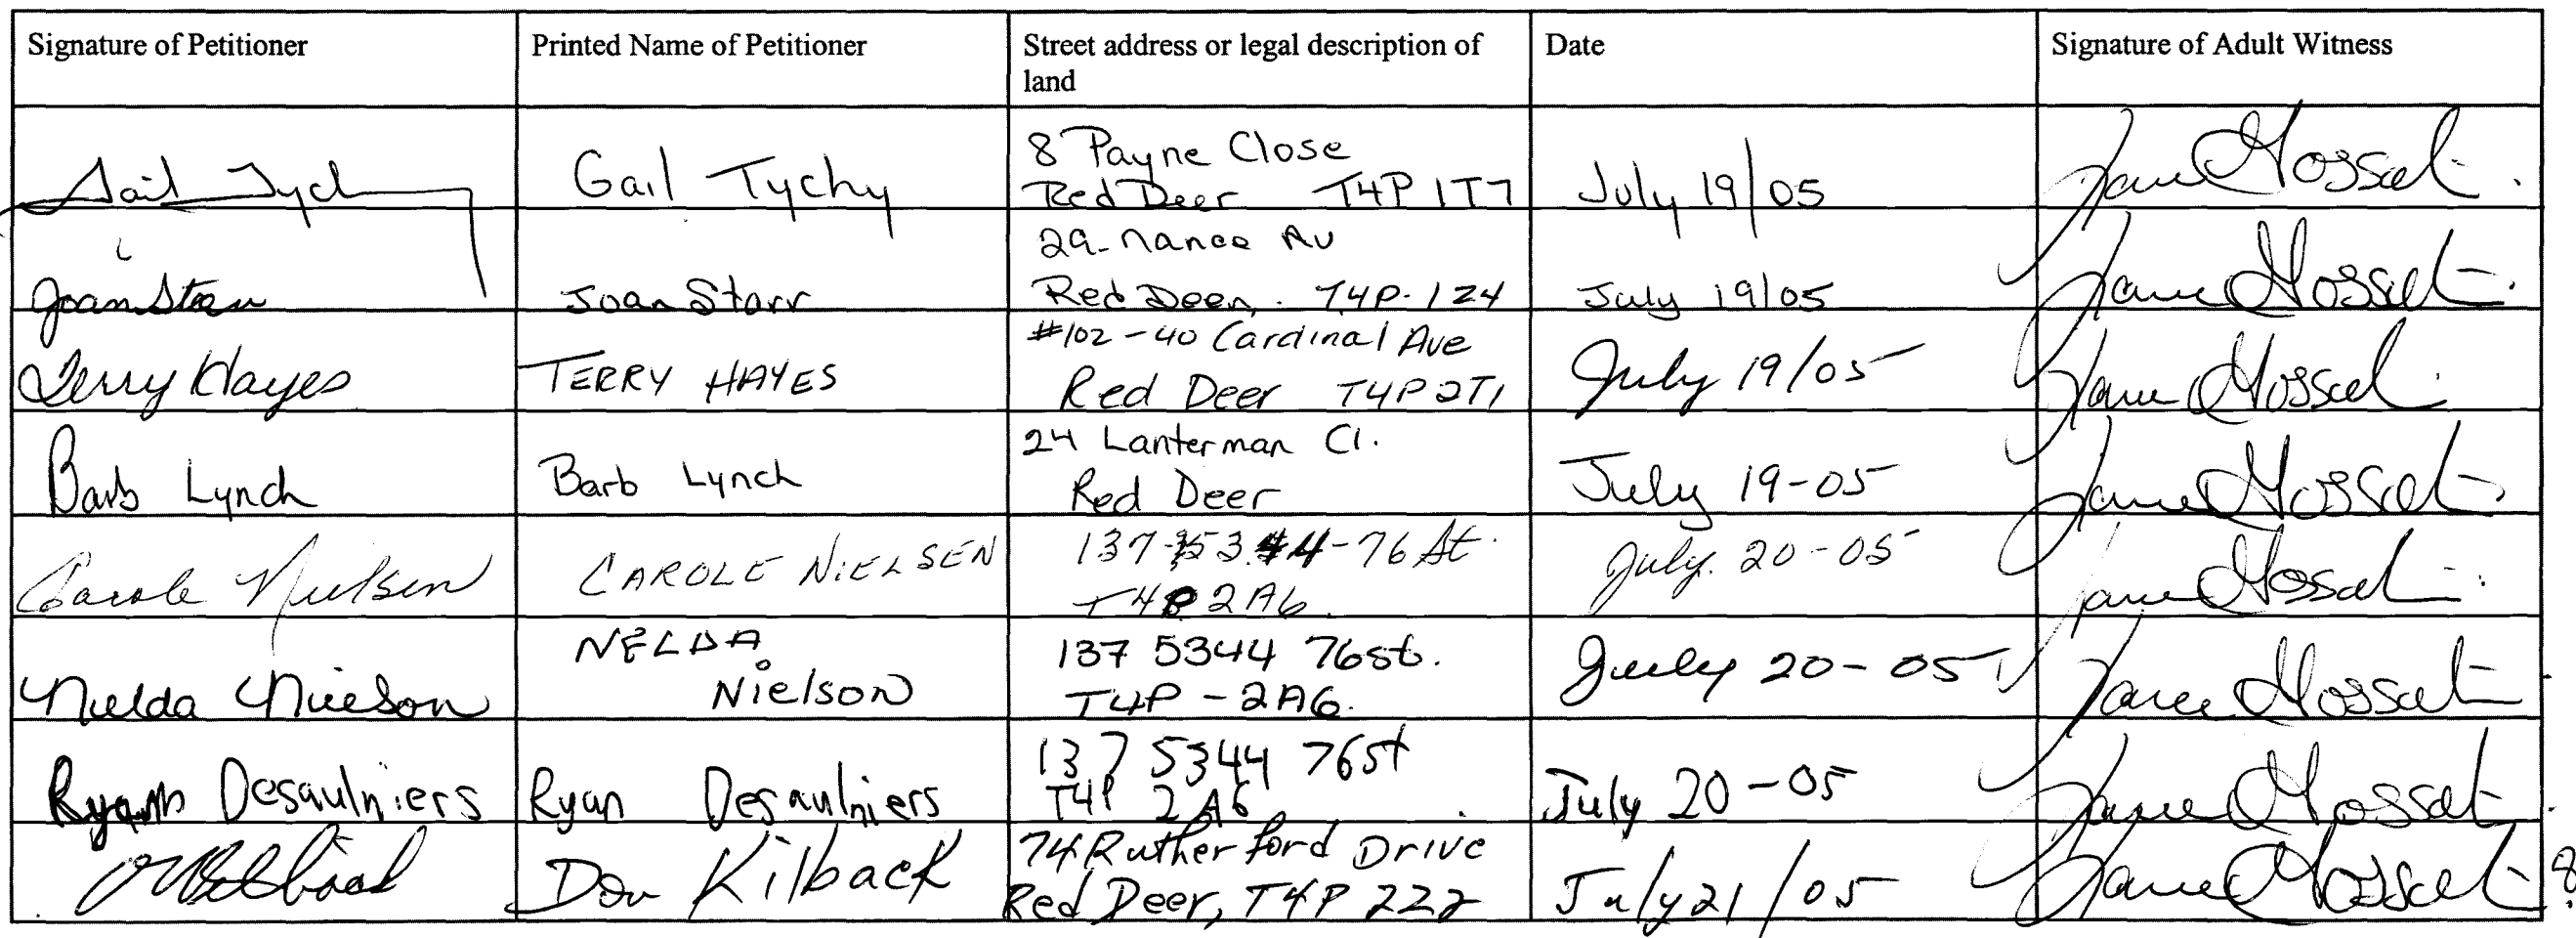 Signature of Petitioner Printed Name of Petitioner Street address or legal description of land Date Signature of Adult Witness
Gail Tychy Gail Tychy 8 Payne Close
Red Deer T4P 1T7 July 19/05
Joan Starr Joan Starr 29-Nance Av
Red Deer, T4P-1Z4 July 19/05
Terry Hayes TERRY HAYES #102-40 Cardinal Ave
Red Deer T4P 2T1 July 19/05
Barb Lynch Barb Lynch 24 Lanterman Cl.
Red Deer July 19-05
Carole Nielsen CAROLE NIELSEN 137-5344-76 St.
T4P 2A6. July. 20-05
Nelda Nielson NELDA
Nielson 137 5344 76st.
T4P-2A6. July 20-05
Ryan Desaulniers Ryan Desaulniers 137 5344 76st
T4P 2A6 July 20-05
Don Kilback 74 Rutherford Drive
Red Deer, T4P 3Z2 July 21/05
8